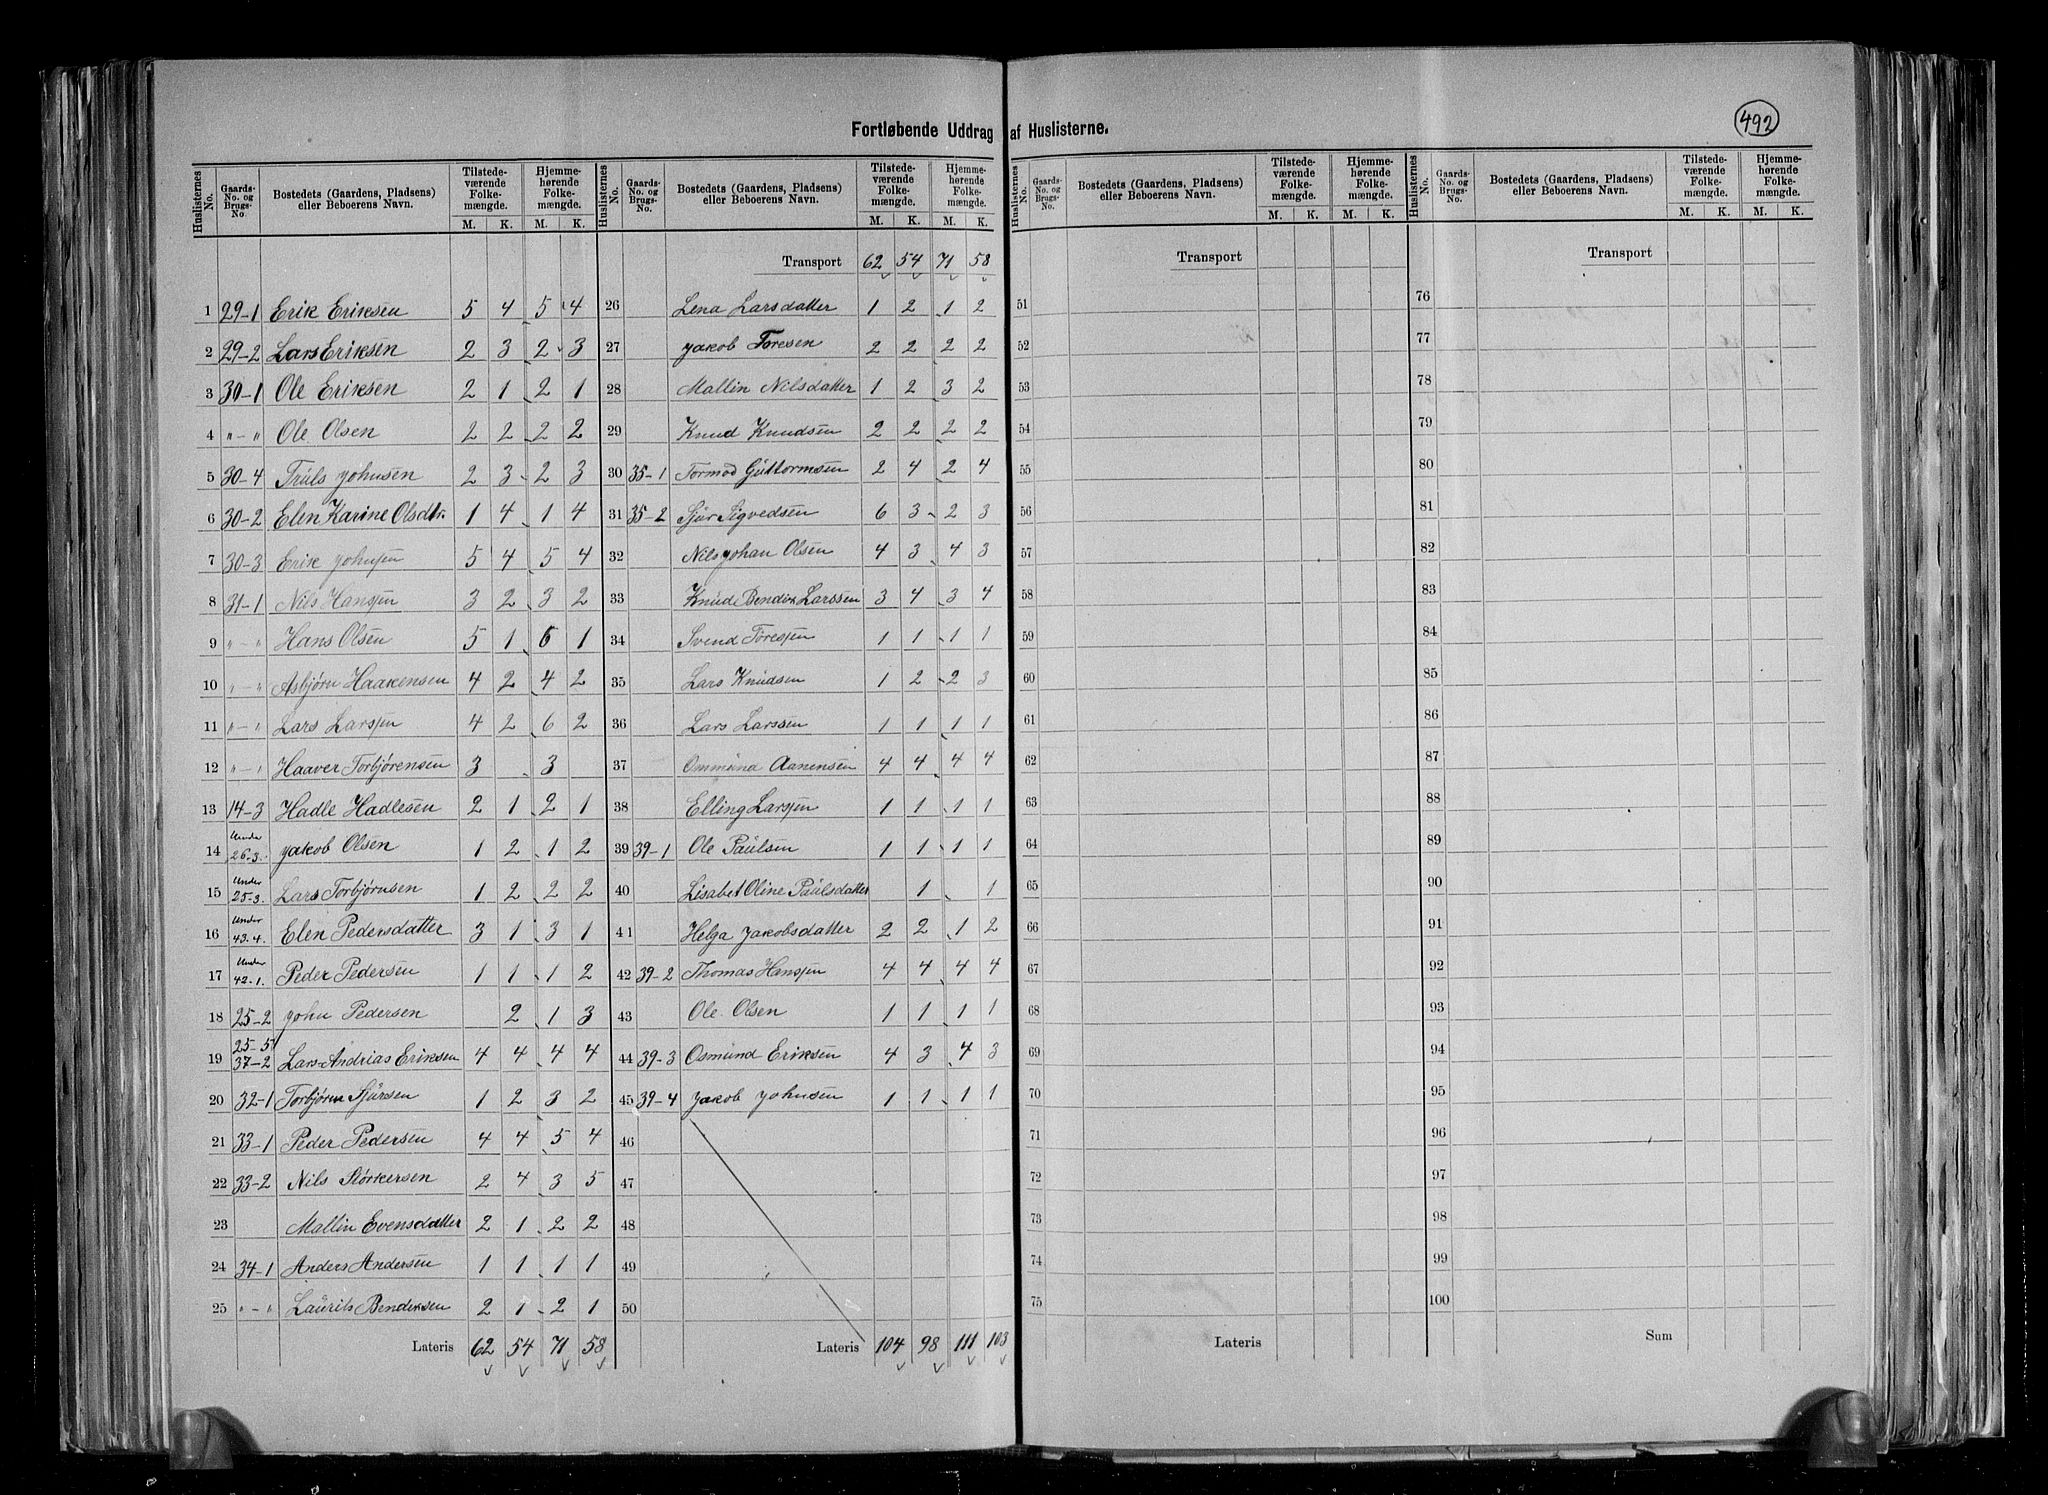 Fortløbende Uddrag af Huslisterne.
492
Huslisternes No. Gaards-No. og Brugs-No. Bostedets (Gaardens, Pladsens) eller Beboerens Navn. Tilstedeværende Folkemængde. Hjemmehørende Folkemængde.
M. K. M. K.
1 29-1 Erik Eriksen 5 4 5 4
2 29-2 Lars Eriksen 2 3 2 3
3 30-1 Ole Eriksen 2 1 2 1
4 " - " Ole Olsen 2 2 2 2
5 30-4 Truls Johnsen 2 3 2 3
6 30-2 Elen Karine Olsdtr. 1 4 1 4
7 30-3 Erik Johnsen 5 4 5 4
8 31-1 Nils Hansen 3 2 3 2
9 " - " Hans Olsen 5 1 6 1
10 " - " Asbjørn Haakensen 4 2 4 2
11 " - " Lars Larsen 4 2 6 2
12 " - " Haaver Torbjørensen 3 3
13 14-3 Hadle Hadlesen 2 1 2 1
14 Under 26-3. Jakob Olsen 1 2 1 2
15 Under 25-3. Lars Torbjørnsen 1 2 2 2
16 Under 43.4. Elen Pedersdatter 3 1 3 1
17 Under 42-1. Peder Pedersen 1 1 1 2
18 25-2 John Pedersen 2 1 3
19 25-5 37-2 Lars Andrias Eriksen 4 4 4 4
20 32-1 Torbjørn Sjursen 1 2 3 2
21 33-1 Peder Pedersen 4 4 5 4
22 33-2 Nils Størkersen 2 4 3 5
23 Mallin Evensdatter 2 1 2 2
24 34-1 Anders Andersen 1 1 1 1
25 " - " Laurits Bendiksen 2 1 2 1
Lateris 62 54 71 58
Huslisternes No. Gaards-No. og Brugs-No. Bostedets (Gaardens, Pladsens) eller Beboerens Navn. Tilstedeværende Folkemængde. Hjemmehørende Folkemængde.
M. K. M. K.
Transport 62 54 71 58
26 Lena Larsdatter 1 2 1 2
27 Jakob Toresen 2 2 2 2
28 Mallin Nilsdatter 1 2 3 2
29 Knud Knudsen 2 2 2 2
30 35-1 Tormod Guttormsen 2 4 2 4
31 35-2 Sjur Sigvedsen 6 3 2 3
32 Nils Johan Olsen 4 3 4 3
33 Knud Bendik Larssen 3 4 3 4
34 Svend Toresen 1 1 1 1
35 Lars Knudsen 1 2 2 3
36 Lars Larssen 1 1 1 1
37 Ommuna Aanensen 4 4 4 4
38 Elling Larsen 1 1 1 1
39 39-1 Ole Paulsen 1 1 1 1
40 Lisabet Oline Paulsdatter 1 1
41 Helga Jakobsdatter 2 2 1 2
42 39-2 Thomas Hansen 4 4 4 4
43 Ole Olsen 1 1 1 1
44 39-3 Osmund Eriksen 4 3 4 3
45 39-4 Jakob Johnsen 1 1 1 1
46
47
48
49
50
Lateris 104 98 111 103
Huslisternes No. Gaards-No. og Brugs-No. Bostedets (Gaardens, Pladsens) eller Beboerens Navn. Tilstedeværende Folkemængde. Hjemmehørende Folkemængde.
M. K. M. K.
Transport
51
52
53
54
55
56
57
58
59
60
61
62
63
64
65
66
67
68
69
70
71
72
73
74
75
Lateris
Huslisternes No. Gaards-No. og Brugs-No. Bostedets (Gaardens, Pladsens) eller Beboerens Navn. Tilstedeværende Folkemængde. Hjemmehørende Folkemængde.
M. K. M. K.
Transport
76
77
78
79
80
81
82
83
84
85
86
87
88
89
90
91
92
93
94
95
96
97
98
99
100
Sum